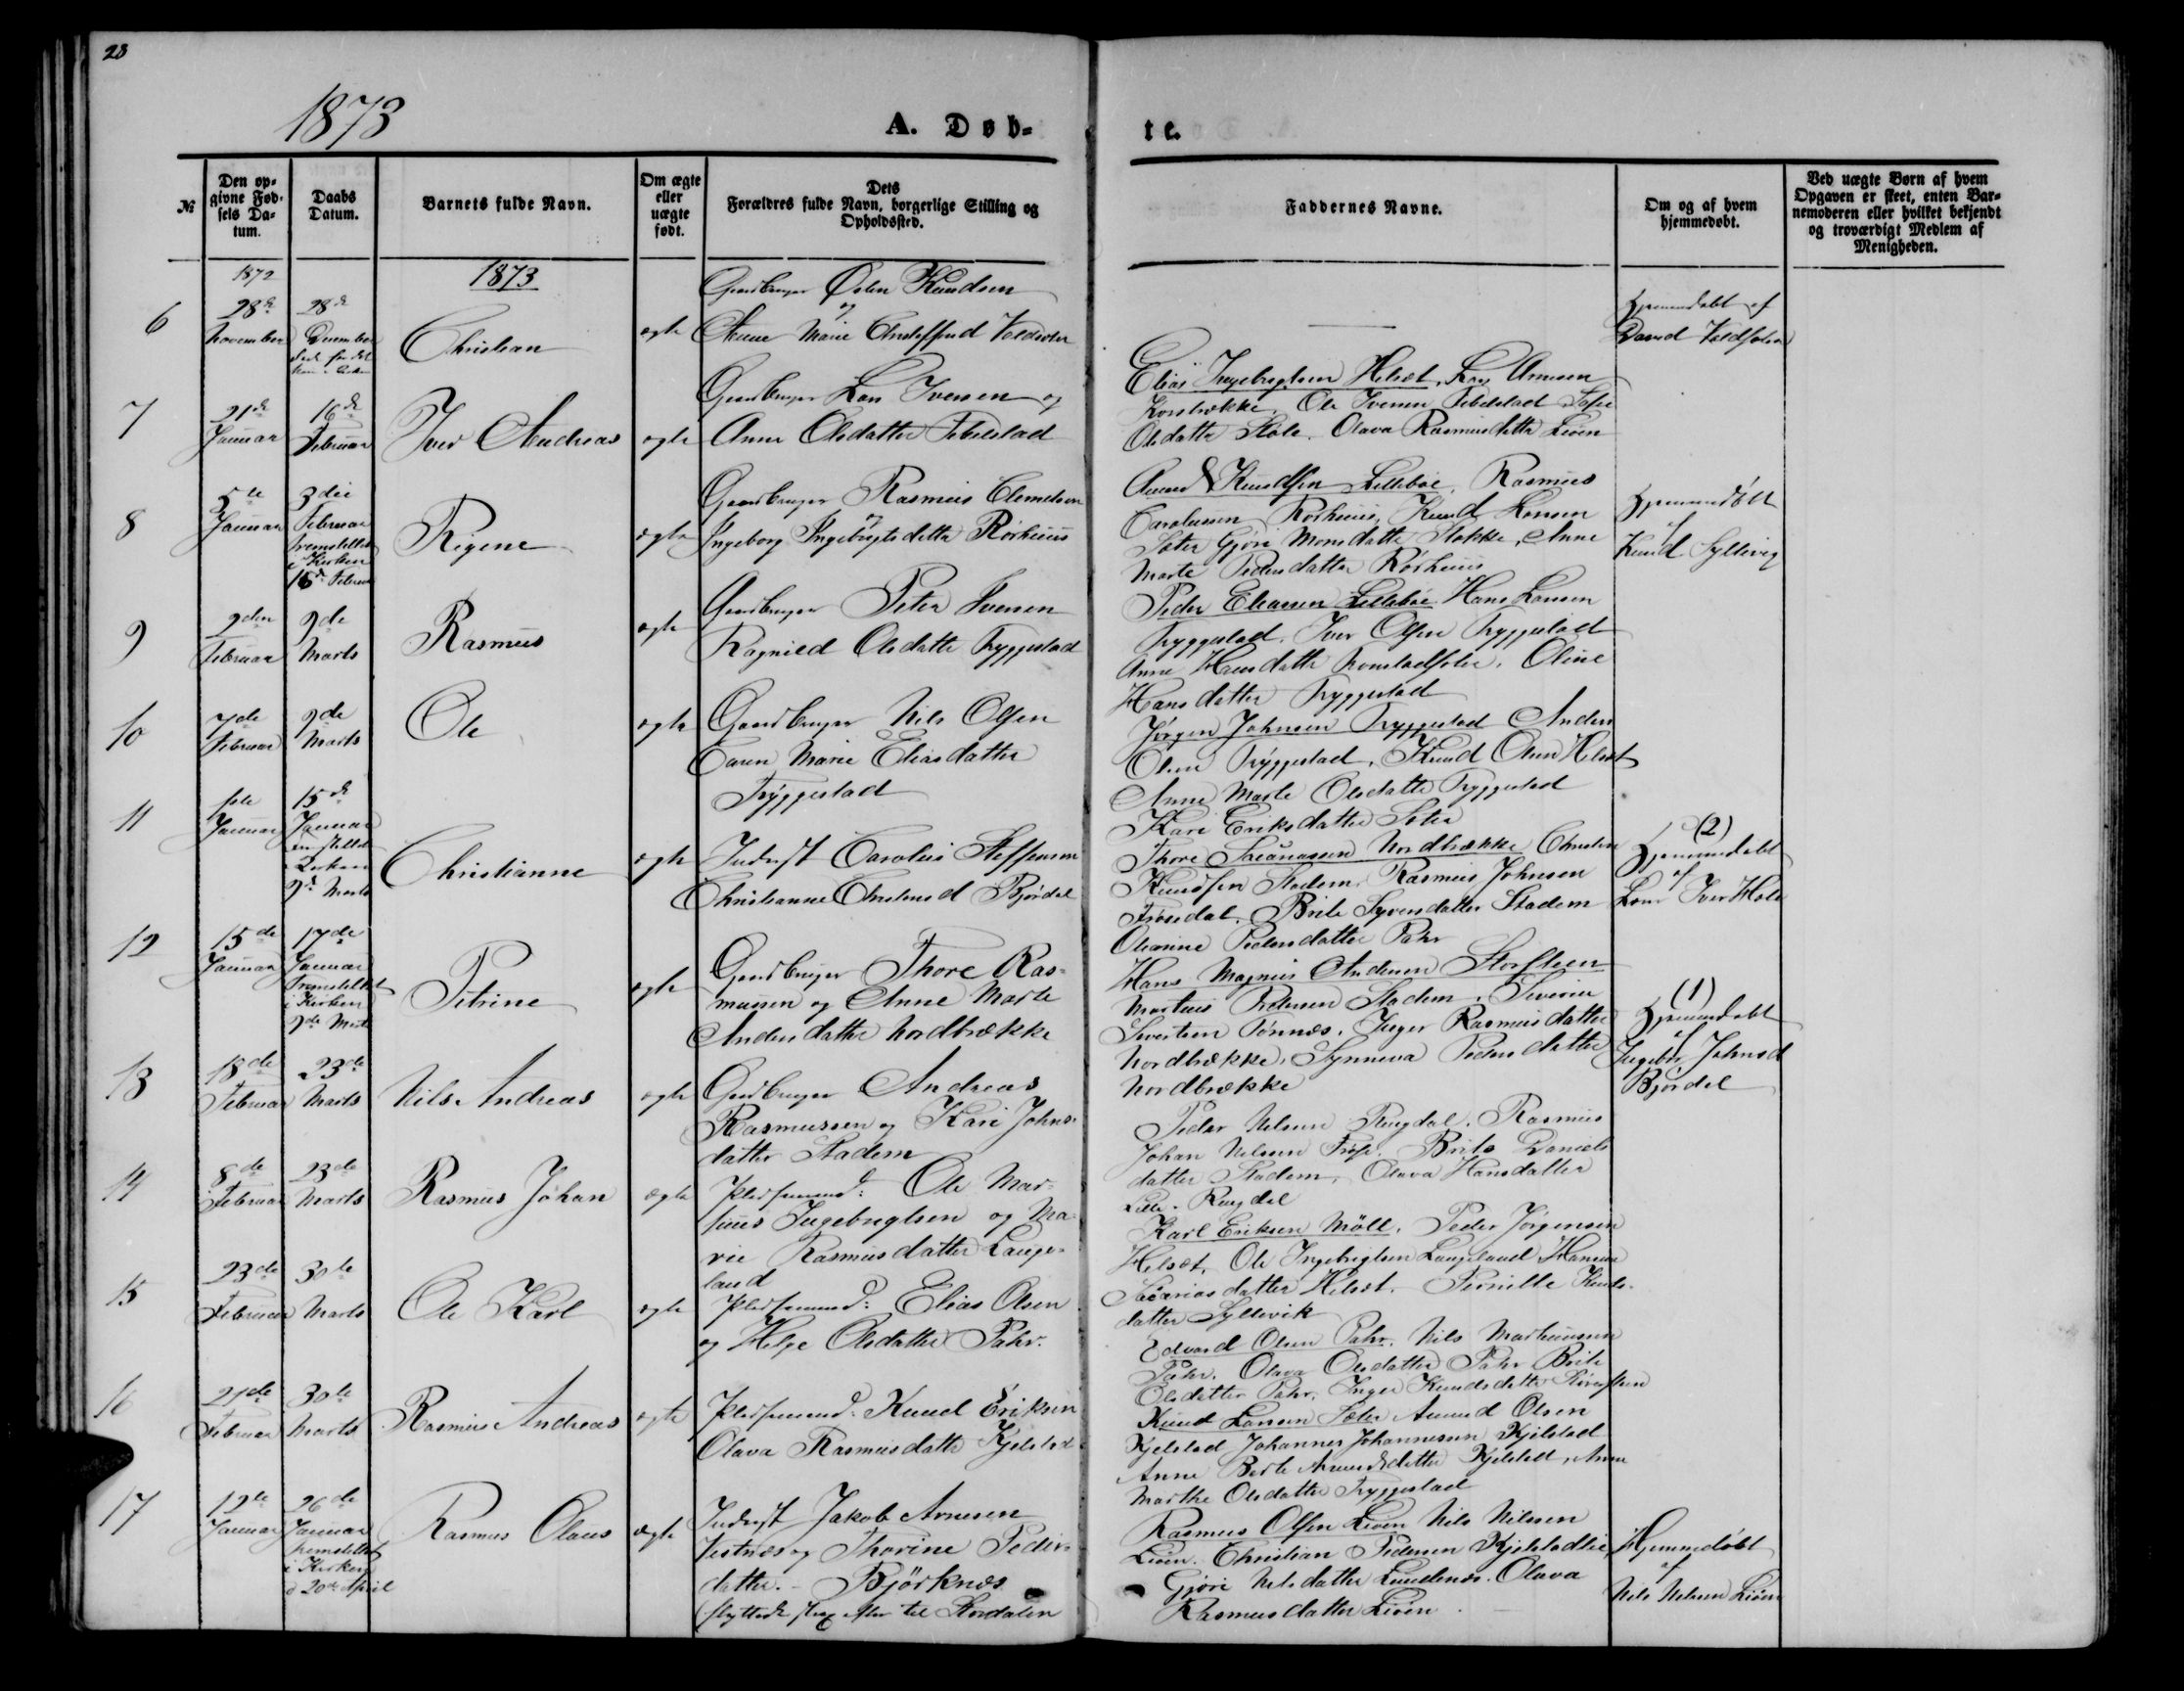 28
1873
A. Døb-
te.
№
Den op-
givne Fød-
sels Da-
tum.
Daabs
Datum.
Barnets fulde Navn.
Om ægte
eller
uægte
født.
Dets
Forældres fulde Navn, borgerlige Stilling og
Opholdssted.
Faddernes Navne.
Om og af hvem
hjemmedøbt.
Ved uægte Børn af hvem
Opgaven er skeet, enten Bar-
nemoderen eller hvilket bekjendt
og troværdigt Medlem af
Menigheden.
1872
1873
6
28de
November
28de
December
Christian
ægte
Gaardbruger Knudsen
og
Anne Marie
Hjemmedøbt af
7
21de
Januar
16de
Februar
Iver Andreas
ægte
Gaardbruger Lars Iversen og
Anne Olsdatter
Elias Ingebrigtsen Helset,
Ole Iversen
Olsdatter Olava Rasmusdatter Liøen
8
5te
Januar
3die
Februar
fremstillet
i Kirken
16de Februar
Regine
ægte
Gaardbruger Rasmus
og
Ingeborg Ingebrigtsdatter Rørhuus
Amund Knudsen Lillebøe, Rasmus
Rørhuus, Knud Larsen
Sæter Gjøri Monsdatter Stokke, Anne
Marte Pedersdatter Rørhuus
Hjemmedøbt
af
Knud Syltevig
9
2den
Februar
9de
Marts
Rasmus
ægte
Gaardbruger Peter Iversen
Ragnild Olsdatter Tryggestad
Peder Eliassen Lillebøe Hans Larsen
Tryggestad. Iver Olsen Tryggestad
Anne Hansdatter Oline
Hansdatter Tryggestad
10
7de
Februar
9de
Marts
Ole
ægte
Gaardbruger Nils Olsen
Caren Marie Eliasdatter
Tryggestad
Jørgen Johnsen Tryggestad Anders
Olsen Tryggestad, Knud Olsen Helset
Anne Marte Olsdatter Tryggestad
Kari Eriksdatter Sæter
11
1ste
Januar
15de
Januar
9de Marts
Christianne
ægte
Inderst Carolus Steffensen
Christianne Bjørdal
Thore Nordbrække Christen
Knudsen Stadem, Rasmus Johnsen
Frøisdal, Brite Syversdatter Stadem
Oleanne Pedersdatter Pahr
(2)
Hjemmedøbt
af
Iver Hole
12
15de
Januar
17de
Januar
fremstillet
i Kirken
9de Marts
Petrine
ægte
Gaardbruger Thore Ras-
mussen og Anne Marte
Andersdatter Nordbrække
Hans Magnus Andersen
Martinus Pedersen Stadem,
Tønnes, Inger Rasmusdatter
Nordbrække, Synneva Pedersdatter
Nordbrække
(1)
Hjemmedøbt
af
Ingebor Johnsd
Bjørdal
13
18de
Februar
23de
Marts
Nils Andreas
ægte
Gaardbruger Andreas
Rasmussen og Kari Johns-
datter Stadem
Peder Nilsen Ringdal, Rasmus
Johan Nilsen Brite Daniels
datter Stadem, Olava Hansdatter
Lille-Ringdal
14
8de
Februar
23de
Marts
Rasmus Johan
ægte
Pladsmand: Ole Mar-
tinus Ingebrigtsen og Ma-
rie Rasmusdatter Lange-
land
Karl Eriksen Møll, Peder Jørgensen
Helset, Ole Ingebrigtsen Langeland Hanna
Sacariasdatter Helset. Pernille Knuds-
datter Syltevik
15
23de
Februar
30te
Marts
Ole Karl
ægte
Pladsmand: Elias Olsen
og Helge Olsdatter Pahr.
Edvard Olsen Pahr, Nils Marthinussen
Pahr. Olava Olsdatter Pahr Brite
Olsdatter Pahr, Inger Knudsdatter
16
21de
Februar
30te
Marts
Rasmus Andreas
ægte
Pladsmand: Knud Eriksen
Olava Rasmusdatter Kjelstad
Knud Larsen Sæter Amund Olsen
Kjelstad Johannes Johannessen Kjelstad
Anne Berte Amundsdatter Kjelstad, Anne
Marthe Olsdatter Tryggestad
17
19de
Januar
26de
Januar
fremstillet
i Kirken
d 20de April
Rasmus Olaus
ægte
Inderst Jakob Arnesen
Vestnes og Thorine Peders-
datter. - Bjørknes
(flyttede strax efter til Stordalen
Rasmus Olsen Liøen Nils Nilsen
Liøen. Christian Pedersen Kjelstadlie,
Gjøri Nilsdatter Lundenes. Olava
Rasmusdatter Liøen.
Hjemmedøbt
af
Nils Nilsen Liøen